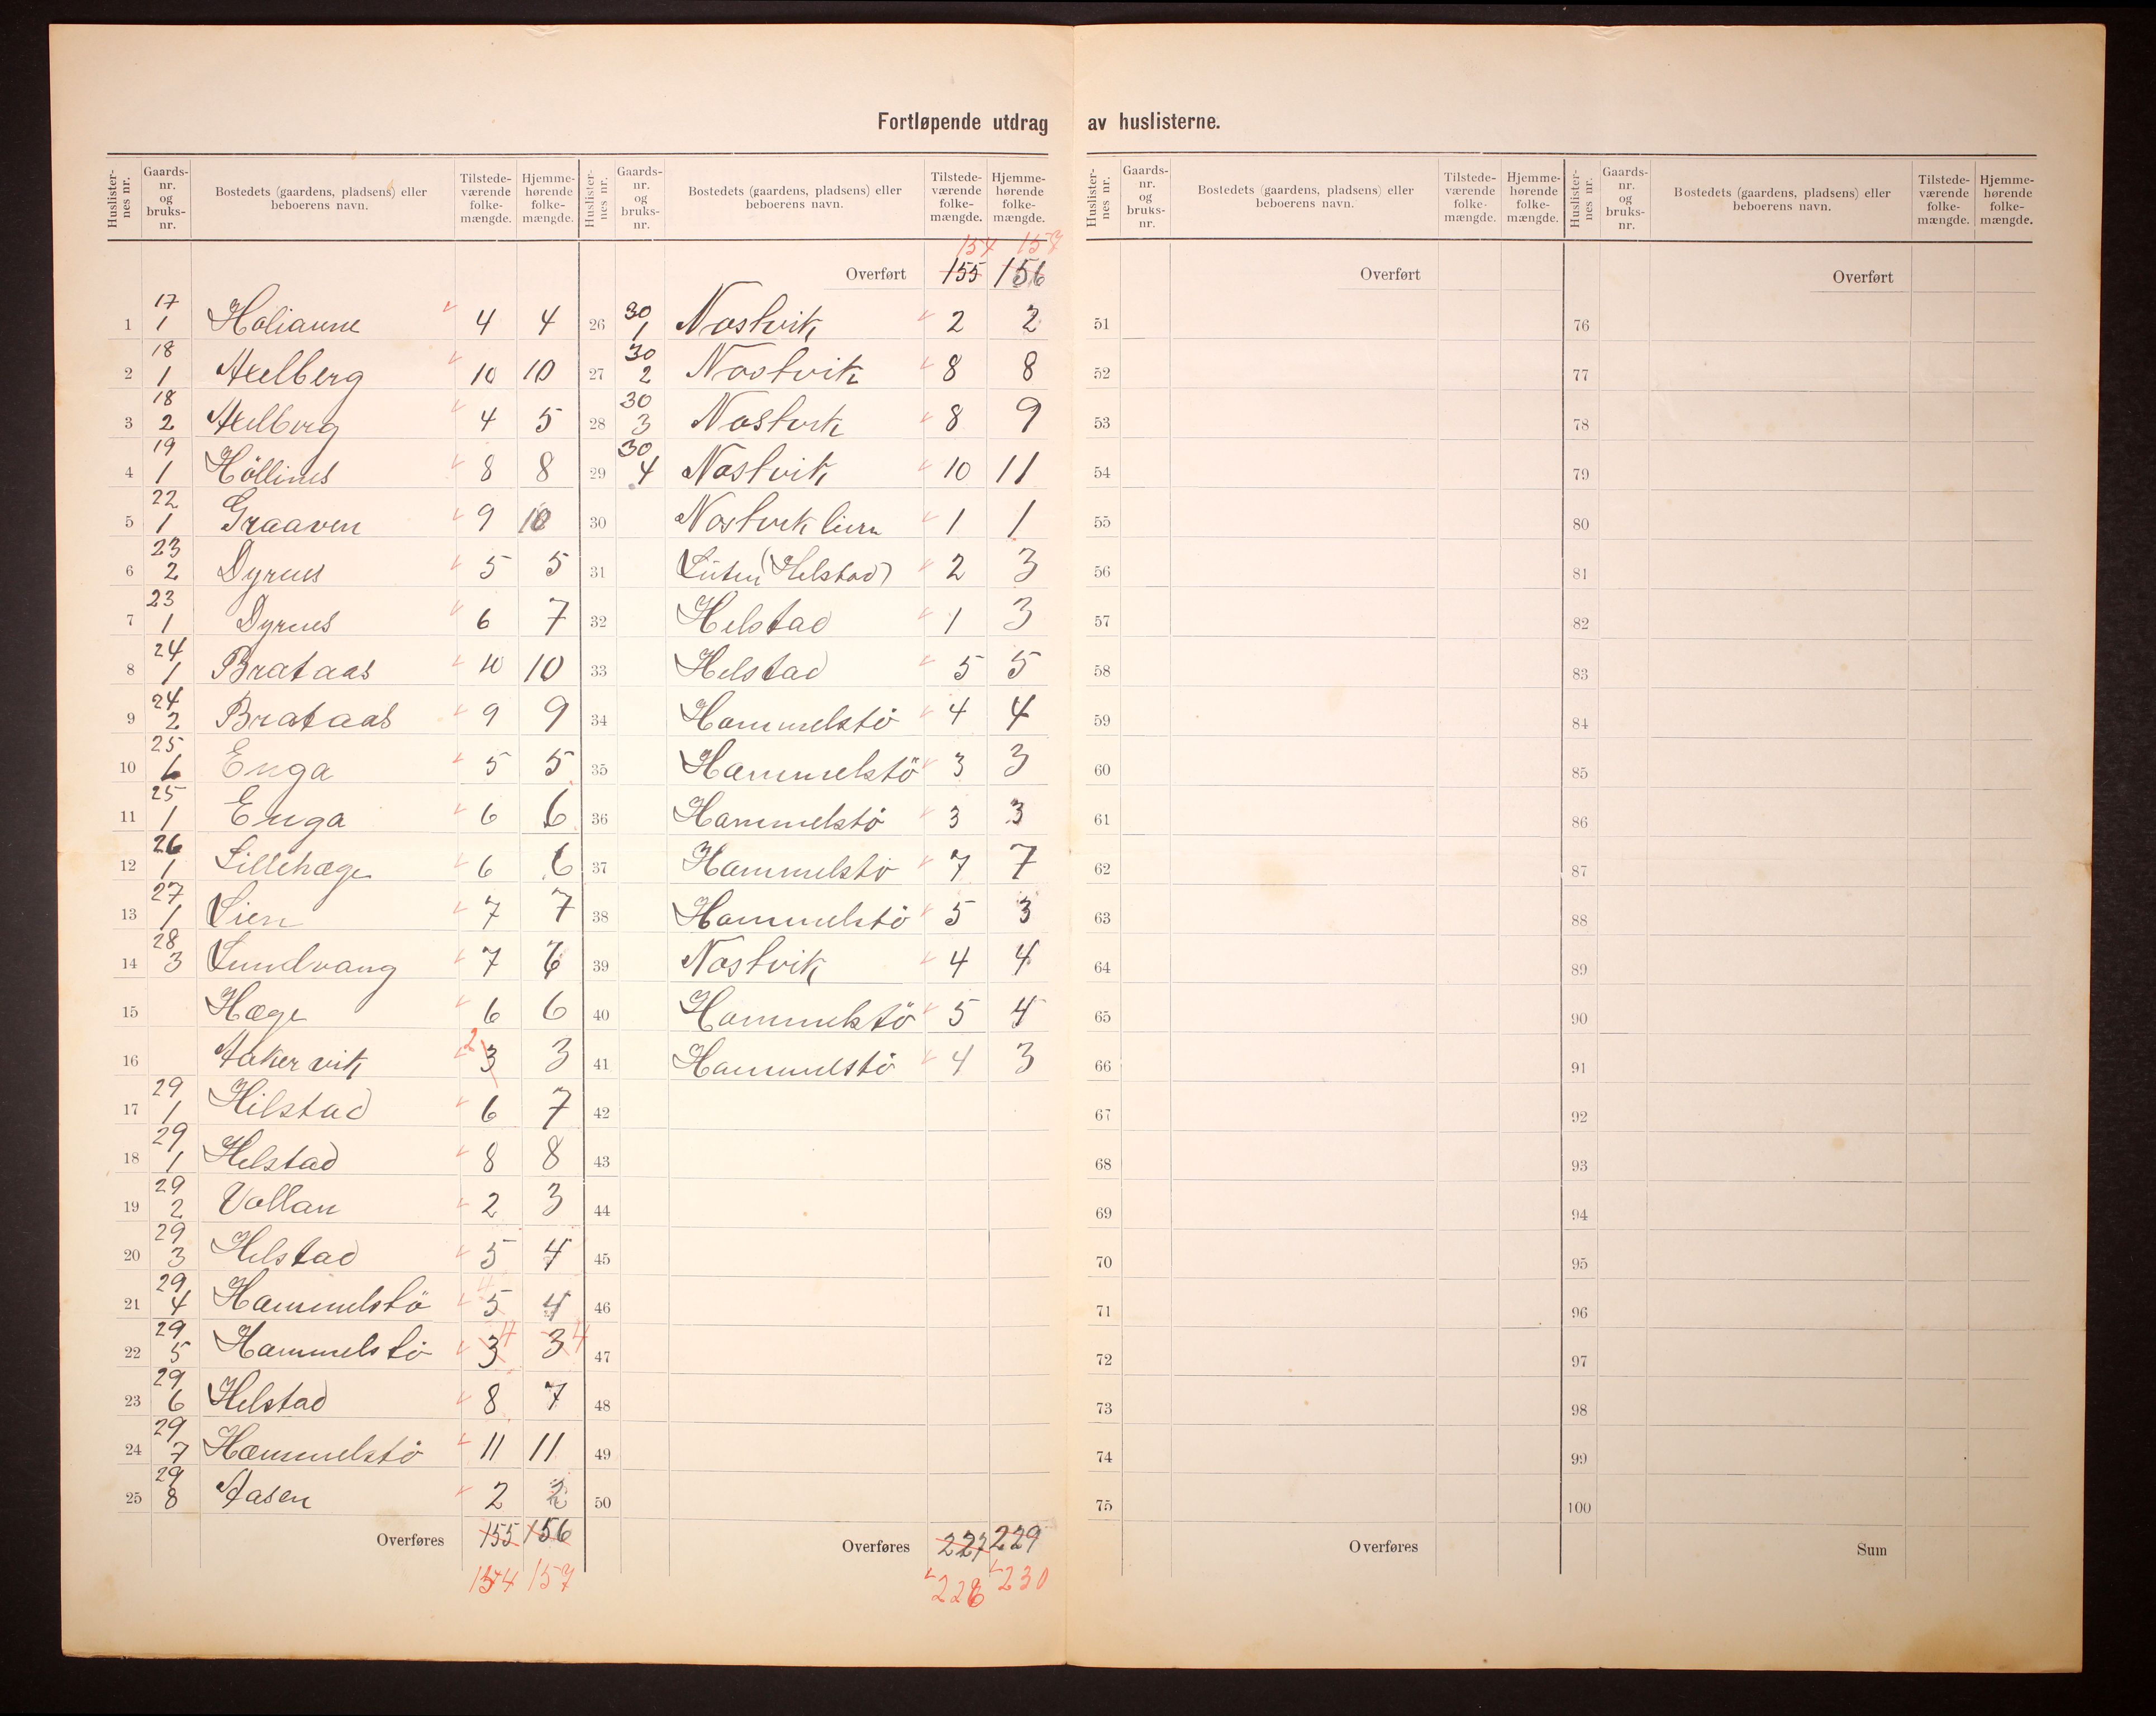 Fortløpende utdrag av huslisterne.
Huslister-nes nr. Gaards-nr. og bruks-nr. Bostedets (gaardens, pladsens) eller beboerens navn. Tilstede-værende folke-mængde. Hjemme-hørende folke-mængde.
1 17/1 Holianne 4 4
2 18/1 Axelberg 10 10
3 18/2 Axelberg 4 5
4 19/1 Höllines 8 8
5 22/1 Graaven 9 10
6 23/2 Dyrnes 5 5
7 23/1 Dyrnes 6 7
8 24/1 Brataas 10 10
9 24/2 Brataas 9 9
10 25/6 Enga 5 5
11 25/1 Enga 6 6
12 26/1 Lillehæge 6 6
13 27/1 Lien 7 7
14 28/3 Lundvang 7 6
15 Hæge 6 6
16 Aakervik 3 2 3
17 29/1 Hilstad 6 7
18 29/1 Helstad 8 8
19 29/2 Vollan 2 3
20 29/3 Helstad 5 4
21 29/4 Hammelstö 5 4 4
22 29/5 Hammelstö 3 4 3 4
23 29/6 Helstad 8 7
24 29/7 Hammelstö 11 11
25 29/8 Aasen 2 2
Overføres 155 156
154 157
Huslister-nes nr. Gaards-nr. og bruks-nr. Bostedets (gaardens, pladsens) eller beboerens navn. Tilstede-værende folke-mængde. Hjemme-hørende folke-mængde.
154 157
Overført 155 156
26 30/1 Nostvik 2 2
27 30/2 Nostvik 8 8
28 30/3 Nostvik 8 9
29 30/4 Nostvik 10 11
30 Nostvik 1 1
31 (Helstad) 2 3
32 Helstad 1 3
33 Helstad 5 5
34 Hammelstö 4 4
35 Hammelstö 3 3
36 Hammelstö 3 3
37 Hammelstö 7 7
38 Hammelstö 5 3
39 Nostvik 4 4
40 Hammelstö 5 4
41 Hammelstö 4 3
42
43
44
45
46
47
48
49
50
Overføres 227 229
226 230
Huslister-nes nr. Gaards-nr. og bruks-nr. Bostedets (gaardens, pladsens) eller beboerens navn. Tilstede-værende folke-mængde. Hjemme-hørende folke-mængde.
Overført
51
52
53
54
55
56
57
58
59
60
61
62
63
64
65
66
67
68
69
70
71
72
73
74
75
Overføres
Huslister-nes nr. Gaards-nr. og bruks-nr. Bostedets (gaardens, pladsens) eller beboerens navn. Tilstede-værende folke-mængde. Hjemme-hørende folke-mængde.
Overført
76
77
78
79
80
81
82
83
84
85
86
87
88
89
90
91
92
93
94
95
96
97
98
99
100
Sum